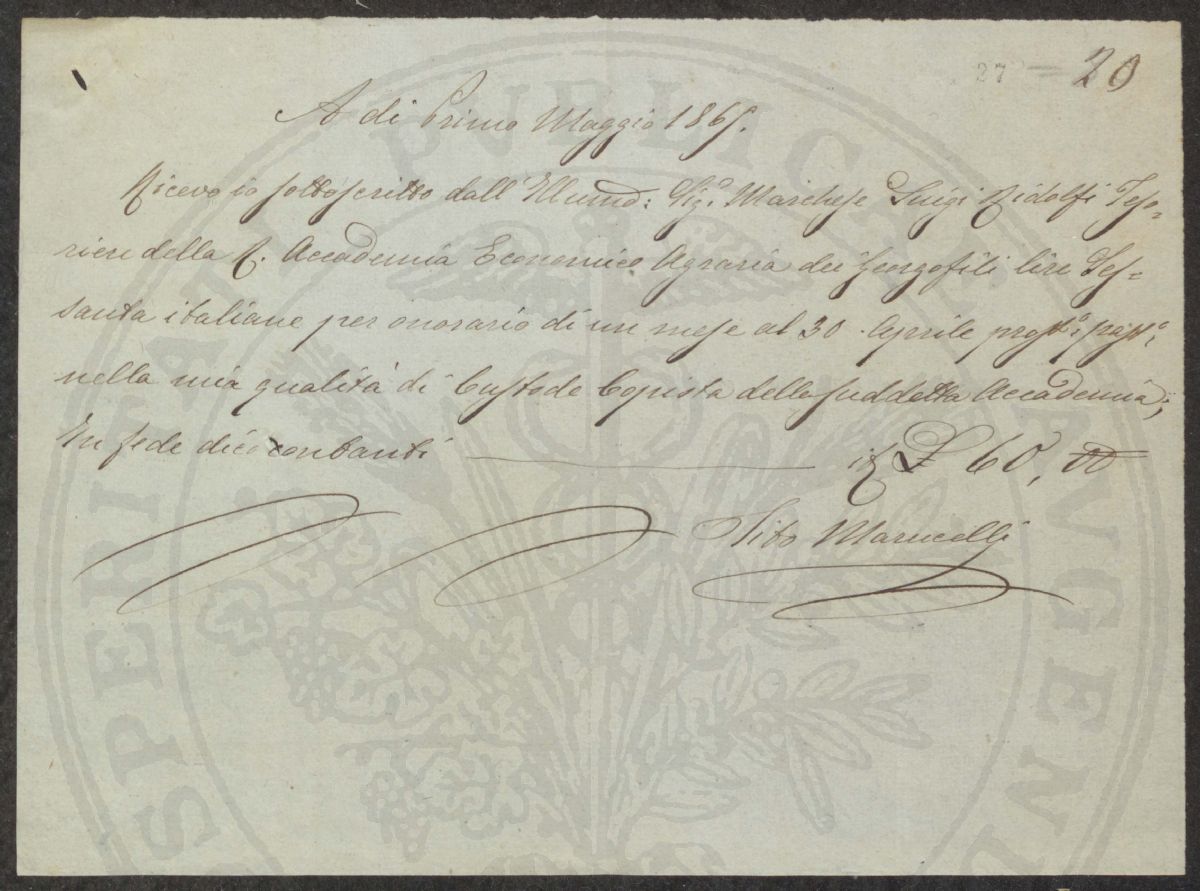 27 — 20
A di Primo Maggio 1865.
Ricevo io sottoscritto dall' Illumo: Sigr. Marchese Luigi Ridolfi Teso-
riere della R. Accademia Economico Agraria dei Georgofili lire Ses-
santa italiane per onorario di un mese al 30. Aprile prosso: passo:
nella mia qualità di Custode Copista della suddetta Accademia;
In fede dico contanti — £ 60, 00
Tito Marucelli
PROSPERITATI PUBLICAE AUGENDAE